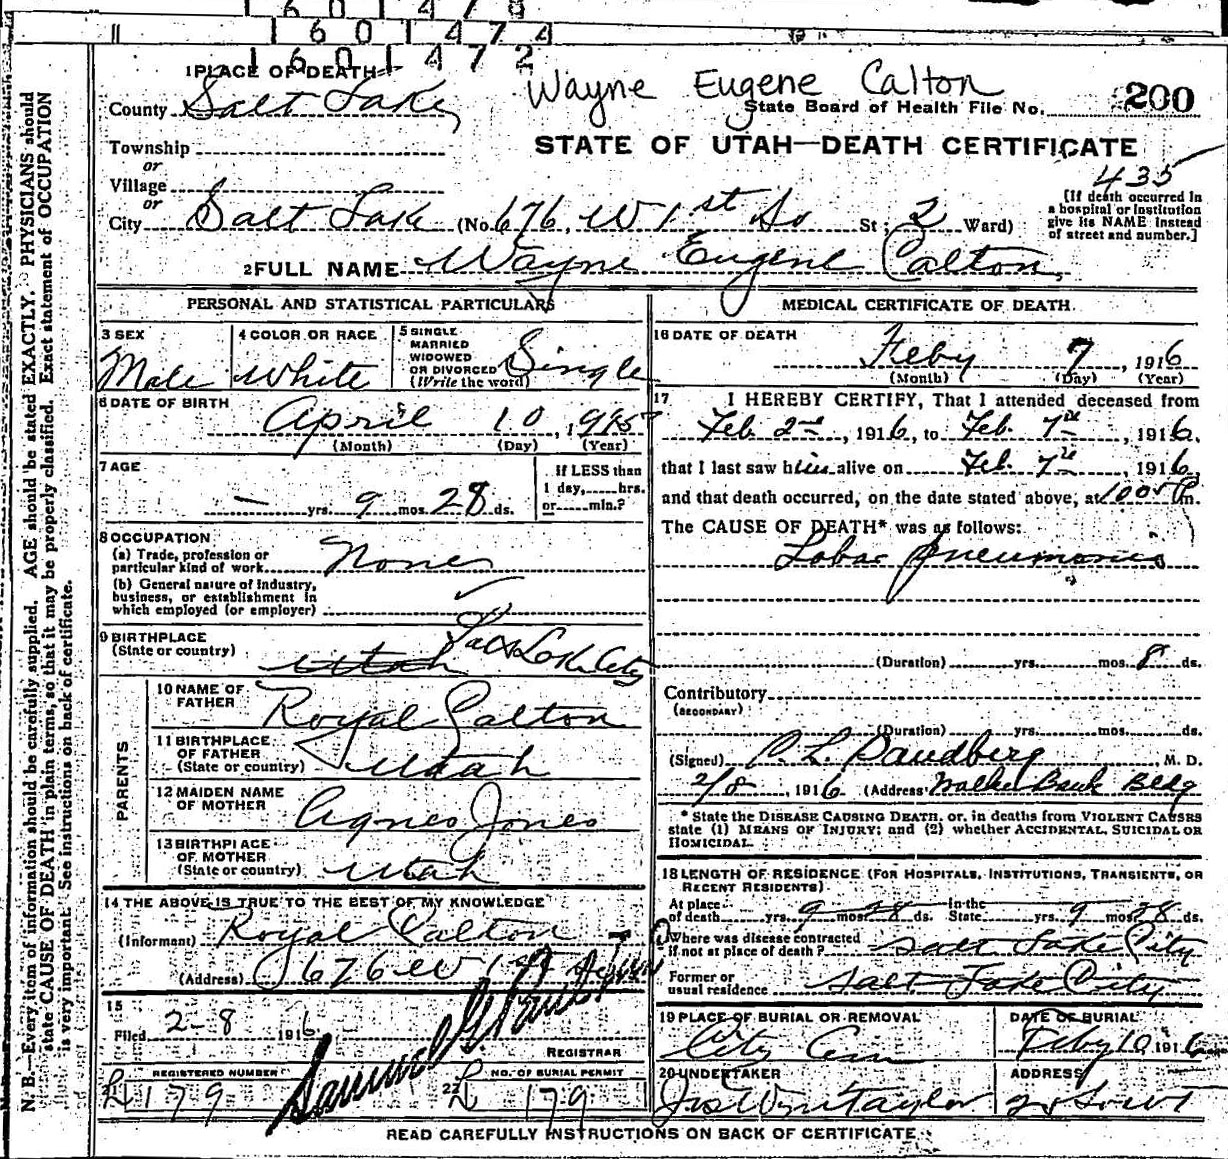 1 6 0 1 4 7 8
1 6 0 1 4 7 4
1 6 0 1 4 7 2
1 PLACE OF DEATH
Wayne Eugene Calton
County Salt Lake
State Board of Health File No. 200
Township
STATE OF UTAH—DEATH CERTIFICATE
or
Village
435
or
City Salt Lake (No. 676, W 1st So St; 2 Ward)
[If death occurred in
a hospital or institution
give its NAME instead
of street and number.]
2 FULL NAME Wayne Eugene Calton
PERSONAL AND STATISTICAL PARTICULARS
3 SEX
Male
4 COLOR OR RACE
White
5 SINGLE
MARRIED
WIDOWED
OR DIVORCED
(Write the word)
Single
6 DATE OF BIRTH
April 10, 1915
(Month) (Day) (Year)
7 AGE
— yrs. 9 mos. 28 ds.
if LESS than
1 day, hrs.
or min.?
8 OCCUPATION
(a) Trade, profession or
particular kind of work None
(b) General nature of industry,
business, or establishment in
which employed (or employer)
9 BIRTHPLACE
(State or country)
Utah Salt Lake City
PARENTS
10 NAME OF
FATHER
Royal Calton
11 BIRTHPLACE
OF FATHER
(State or country)
Utah
12 MAIDEN NAME
OF MOTHER
Agnes Jones
13 BIRTHPLACE
OF MOTHER
(State or country)
Utah
14 THE ABOVE IS TRUE TO THE BEST OF MY KNOWLEDGE
(Informant) Royal Calton
(Address) 676 W 1st
15
Filed 2-8 1916
REGISTRAR
REGISTERED NUMBER
179
NO. OF BURIAL PERMIT
179
MEDICAL CERTIFICATE OF DEATH
16 DATE OF DEATH
Feby 7, 1916
(Month) (Day) (Year)
17 I HEREBY CERTIFY, That I attended deceased from
Feb. 2nd, 1916, to Feb. 7th, 1916,
that I last saw him alive on Feb. 7th, 1916,
and that death occurred, on the date stated above, at P m.
The CAUSE OF DEATH* was as follows:
Lobar Pneumonia
(Duration) yrs. mos. 8 ds.
Contributory
(SECONDARY)
(Duration) yrs. mos. ds.
(Signed) L. Sandberg, M. D.
2/8, 1916 (Address) Walker Bank Bldg
* State the DISEASE CAUSING DEATH, or, in deaths from VIOLENT CAUSES
state (1) MEANS OF INJURY; and (2) whether ACCIDENTAL, SUICIDAL OR
HOMICIDAL.
18 LENGTH OF RESIDENCE (FOR HOSPITALS, INSTITUTIONS, TRANSIENTS, OR
RECENT RESIDENTS)
At place
of death yrs. 9 mos. 28 ds.
In the
State yrs. 9 mos. 28 ds.
Where was disease contracted
if not at place of death? Salt Lake City
Former or
usual residence Salt Lake City
19 PLACE OF BURIAL OR REMOVAL
City Cem
DATE OF BURIAL
Feby 10 1916
20 UNDERTAKER
Taylor
ADDRESS
READ CAREFULLY INSTRUCTIONS ON BACK OF CERTIFICATE
N. B.—Every item of information should be carefully supplied. AGE should be stated EXACTLY. PHYSICIANS should
state CAUSE OF DEATH in plain terms, so that it may be properly classified. Exact statement of OCCUPATION
is very important. See instructions on back of certificate.